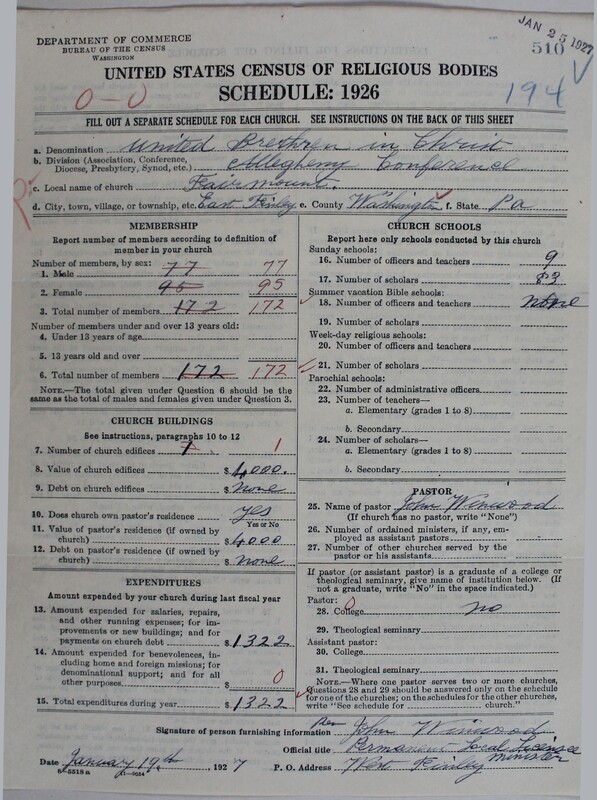 JAN 25 1927
DEPARTMENT OF COMMERCE
BUREAU OF THE CENSUS
WASHINGTON
510
UNITED STATES CENSUS OF RELIGIOUS BODIES
SCHEDULE: 1926
0-0
194
FILL OUT A SEPARATE SCHEDULE FOR EACH CHURCH. SEE INSTRUCTIONS ON THE BACK OF THIS SHEET
a. Denomination United Brethren in Christ
b. Division (Association, Conference,
Diocese, Presbytery, Synod, etc.) Allegheny Conference
c. Local name of church Fairmount.
d. City, town, village, or township, etc. East Finley e. County Washington f. State Pa
MEMBERSHIP
Report number of members according to definition of
member in your church
Number of members, by sex:
1. Male 77 77
2. Female 95 95
3. Total number of members 172 172
Number of members under and over 13 years old:
4. Under 13 years of age
5. 13 years old and over
6. Total number of members 172 172
NOTE.—The total given under Question 6 should be the
same as the total of males and females given under Question 3.
CHURCH BUILDINGS
See instructions, paragraphs 10 to 12
7. Number of church edifices 1 1
8. Value of church edifices $ 4,000.
9. Debt on church edifices $ none
10. Does church own pastor's residence yes
Yes or No
11. Value of pastor's residence (if owned by
church) $ 4000
12. Debt on pastor's residence (if owned by
church) $ none
EXPENDITURES
Amount expended by your church during last fiscal year
13. Amount expended for salaries, repairs,
and other running expenses; for im-
provements or new buildings; and for
payments on church debt $ 1322
14. Amount expended for benevolences, in-
cluding home and foreign missions; for
denominational support; and for all
other purposes $ 0
15. Total expenditures during year $ 1322
CHURCH SCHOOLS
Report here only schools conducted by this church
Sunday schools:
16. Number of officers and teachers 9
17. Number of scholars 83
Summer vacation Bible schools:
18. Number of officers and teachers none
19. Number of scholars
Week-day religious schools:
20. Number of officers and teachers
21. Number of scholars
Parochial schools:
22. Number of administrative officers
23. Number of teachers—
a. Elementary (grades 1 to 8)
b. Secondary
24. Number of scholars—
a. Elementary (grades 1 to 8)
b. Secondary
PASTOR
25. Name of pastor John Winwood
(If church has no pastor, write "None")
26. Number of ordained ministers, if any, em-
ployed as assistant pastors
27. Number of other churches served by the
pastor or his assistants
If pastor (or assistant pastor) is a graduate of a college or
theological seminary, give name of institution below. (If
not a graduate, write "No" in the space indicated.)
Pastor:
28. College 0 no
29. Theological seminary
Assistant pastor:
30. College
31. Theological seminary
NOTE.—Where one pastor serves two or more churches,
Questions 28 and 29 should be answered only on the schedule
for one of the churches; on the schedules for the other churches,
write "See schedule for church."
Signature of person furnishing information Rev John Winwood
Official title Permanent-Local Licensee
Minister
Date January 19th, 1927 P. O. Address West Finley